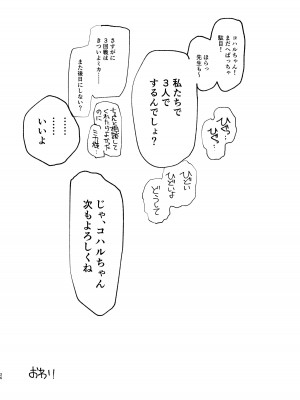 コハルちゃん！
まだへばっちゃ
駄目！
ほらっ
先生も〜
さすがに
３回戦は
きついよーか……
また後日にしない？
私たちで
３人で
するんでしょ？
ひぐっ
ひぐ…
ひどい
ひどいよ
どうして
………
………
いいよ
じゃ、コハルちゃん
次もよろしくね
おわり！